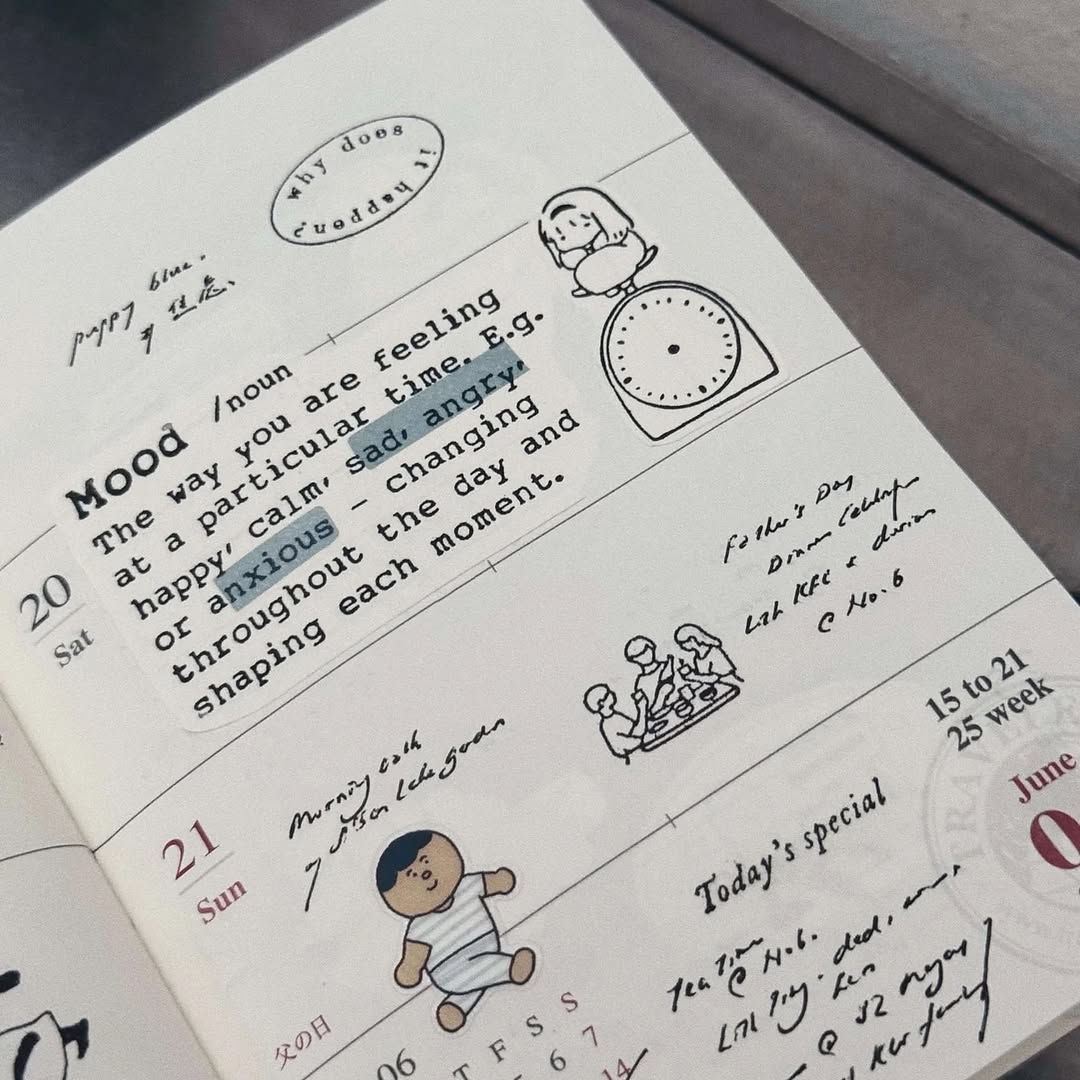 why does
it happen?
puppy blue.
Mood /noun
The way you are feeling
at a particular time. E.g.
happy, calm, sad, angry,
or anxious – changing
throughout the day and
shaping each moment.
20
Sat
Father's Day
Dinner
KFC & durian
@ No. 6
15 to 21
25 week
June
0
TRAVELER
21
Sun
Morning walk
Lake garden
Today's special
Tea Time
@ No. 6.
dad,
@ 52
family
父の日
06
T F S S
6 7
14